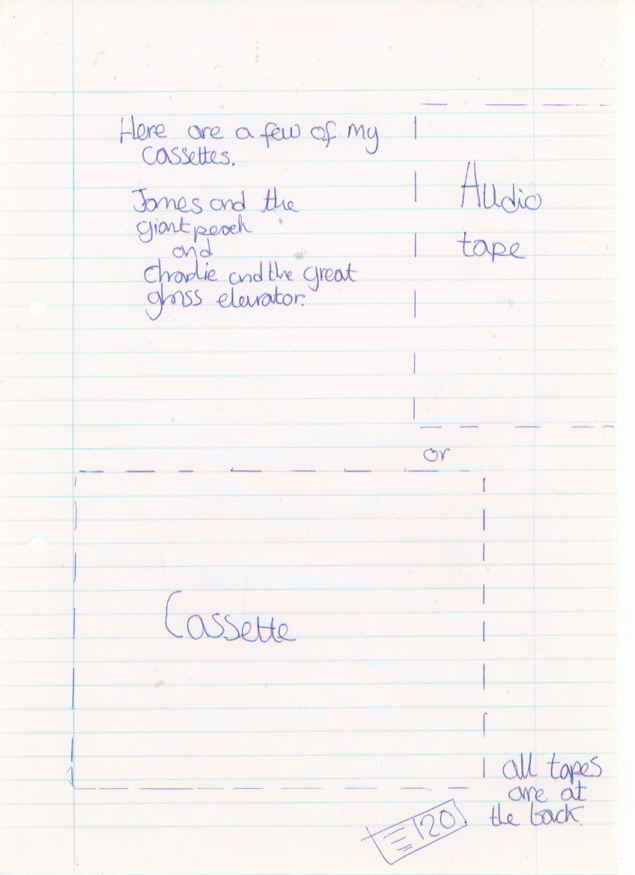 Here are a few of my
cassettes.
James and the
giant peach
and
Charlie and the great
glass elevator.
Audio
tape
or
Cassette
all tapes
are at
the back.
20